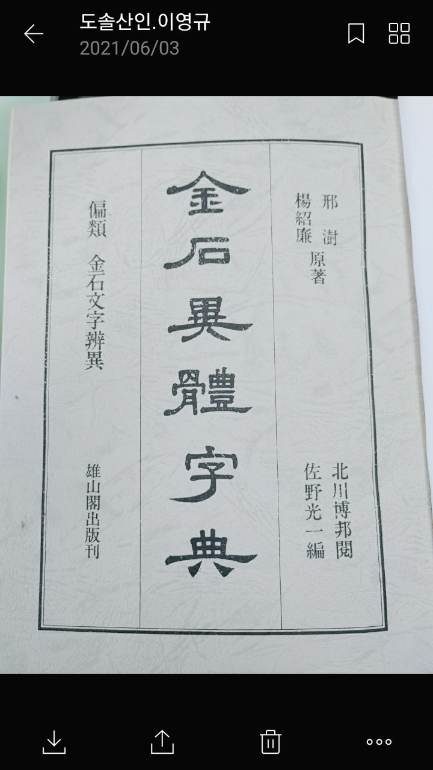 도솔산인.이영규
2021/06/03
邢澍
楊紹廉
原著
北川博邦閱
佐野光一編
金石異體字典
偏類 金石文字辨異
雄山閣出版刊